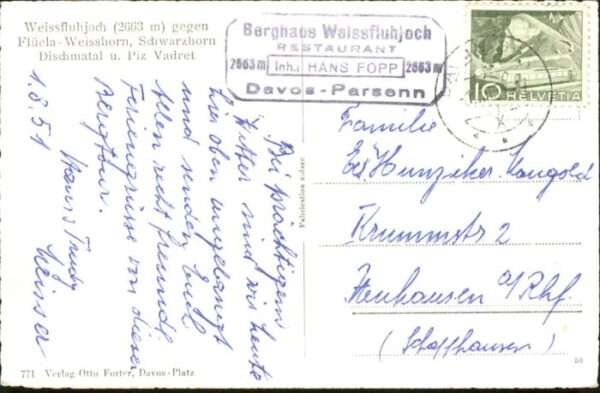 Weissfluhjoch (2663 m) gegen
Flüela-Weisshorn, Schwarzhorn
Dischmatal u. Piz Vadret
Berghaus Weissfluhjoch
RESTAURANT
2663 m Inh. HANS FOPP 2663 m
Davos-Parsenn
10 HELVETIA
1.8.51
Bei prächtigem
Wetter sind wir heute
hier oben angelangt
und senden Euch
Allen recht freundl.
Feriengrüsse von dieser
Bergtour.
Hans Trudy
Familie
Ed. Hunziker-Mangold
Krummstr 2
Neuhausen a/Rhf.
(Schaffhausen)
Fabrication suisse
771 Verlag Otto Furter, Davos-Platz